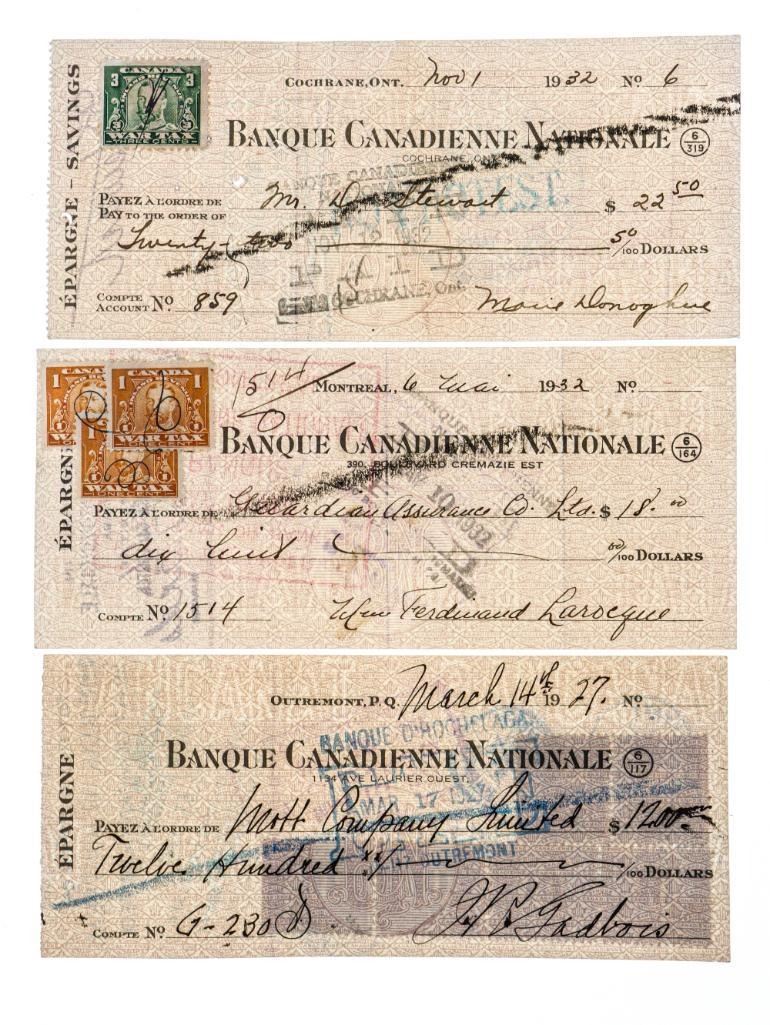 ÉPARGNE - SAVINGS
CANADA
3 3
WAR TAX
THREE CENTS
COCHRANE, ONT. Nov 1 1932 Nº 6
BANQUE CANADIENNE NATIONALE 6/319
COCHRANE, ONT.
PAYEZ À L'ORDRE DE
PAY TO THE ORDER OF Mr. D. Stewart $ 22 50
Twenty-two 50/100 DOLLARS
PAID
COCHRANE, Ont.
COMPTE
ACCOUNT Nº 859 Marie Donoghue
ÉPARGNE
CANADA
1 1
WAR TAX
ONE CENT
1514 MONTREAL, 6 Mai 1932 Nº
BANQUE CANADIENNE NATIONALE 6/164
390, BOULEVARD CREMAZIE EST
PAYEZ À L'ORDRE DE Guardian Assurance Co. Ltd. $ 18.00
dix huit 00/100 DOLLARS
COMPTE Nº 1514 Mme Ferdinand Larocque
ÉPARGNE
OUTREMONT, P.Q. March 14th 1927. Nº
BANQUE D'HOCHELAGA
BANQUE CANADIENNE NATIONALE 6/117
1134 AVE LAURIER OUEST.
MAR 17 1927
PAYEZ À L'ORDRE DE Mott Company Limited $ 1200
OUTREMONT
Twelve Hundred xx/100 DOLLARS
COMPTE Nº G-230 J. P. Gadbois